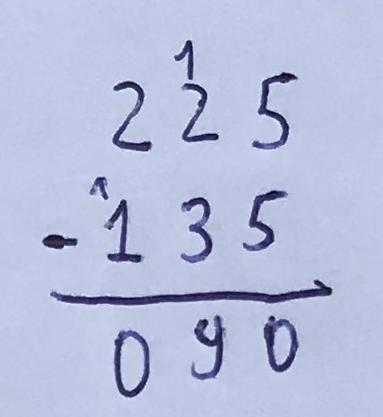 1
225
1
-135
090